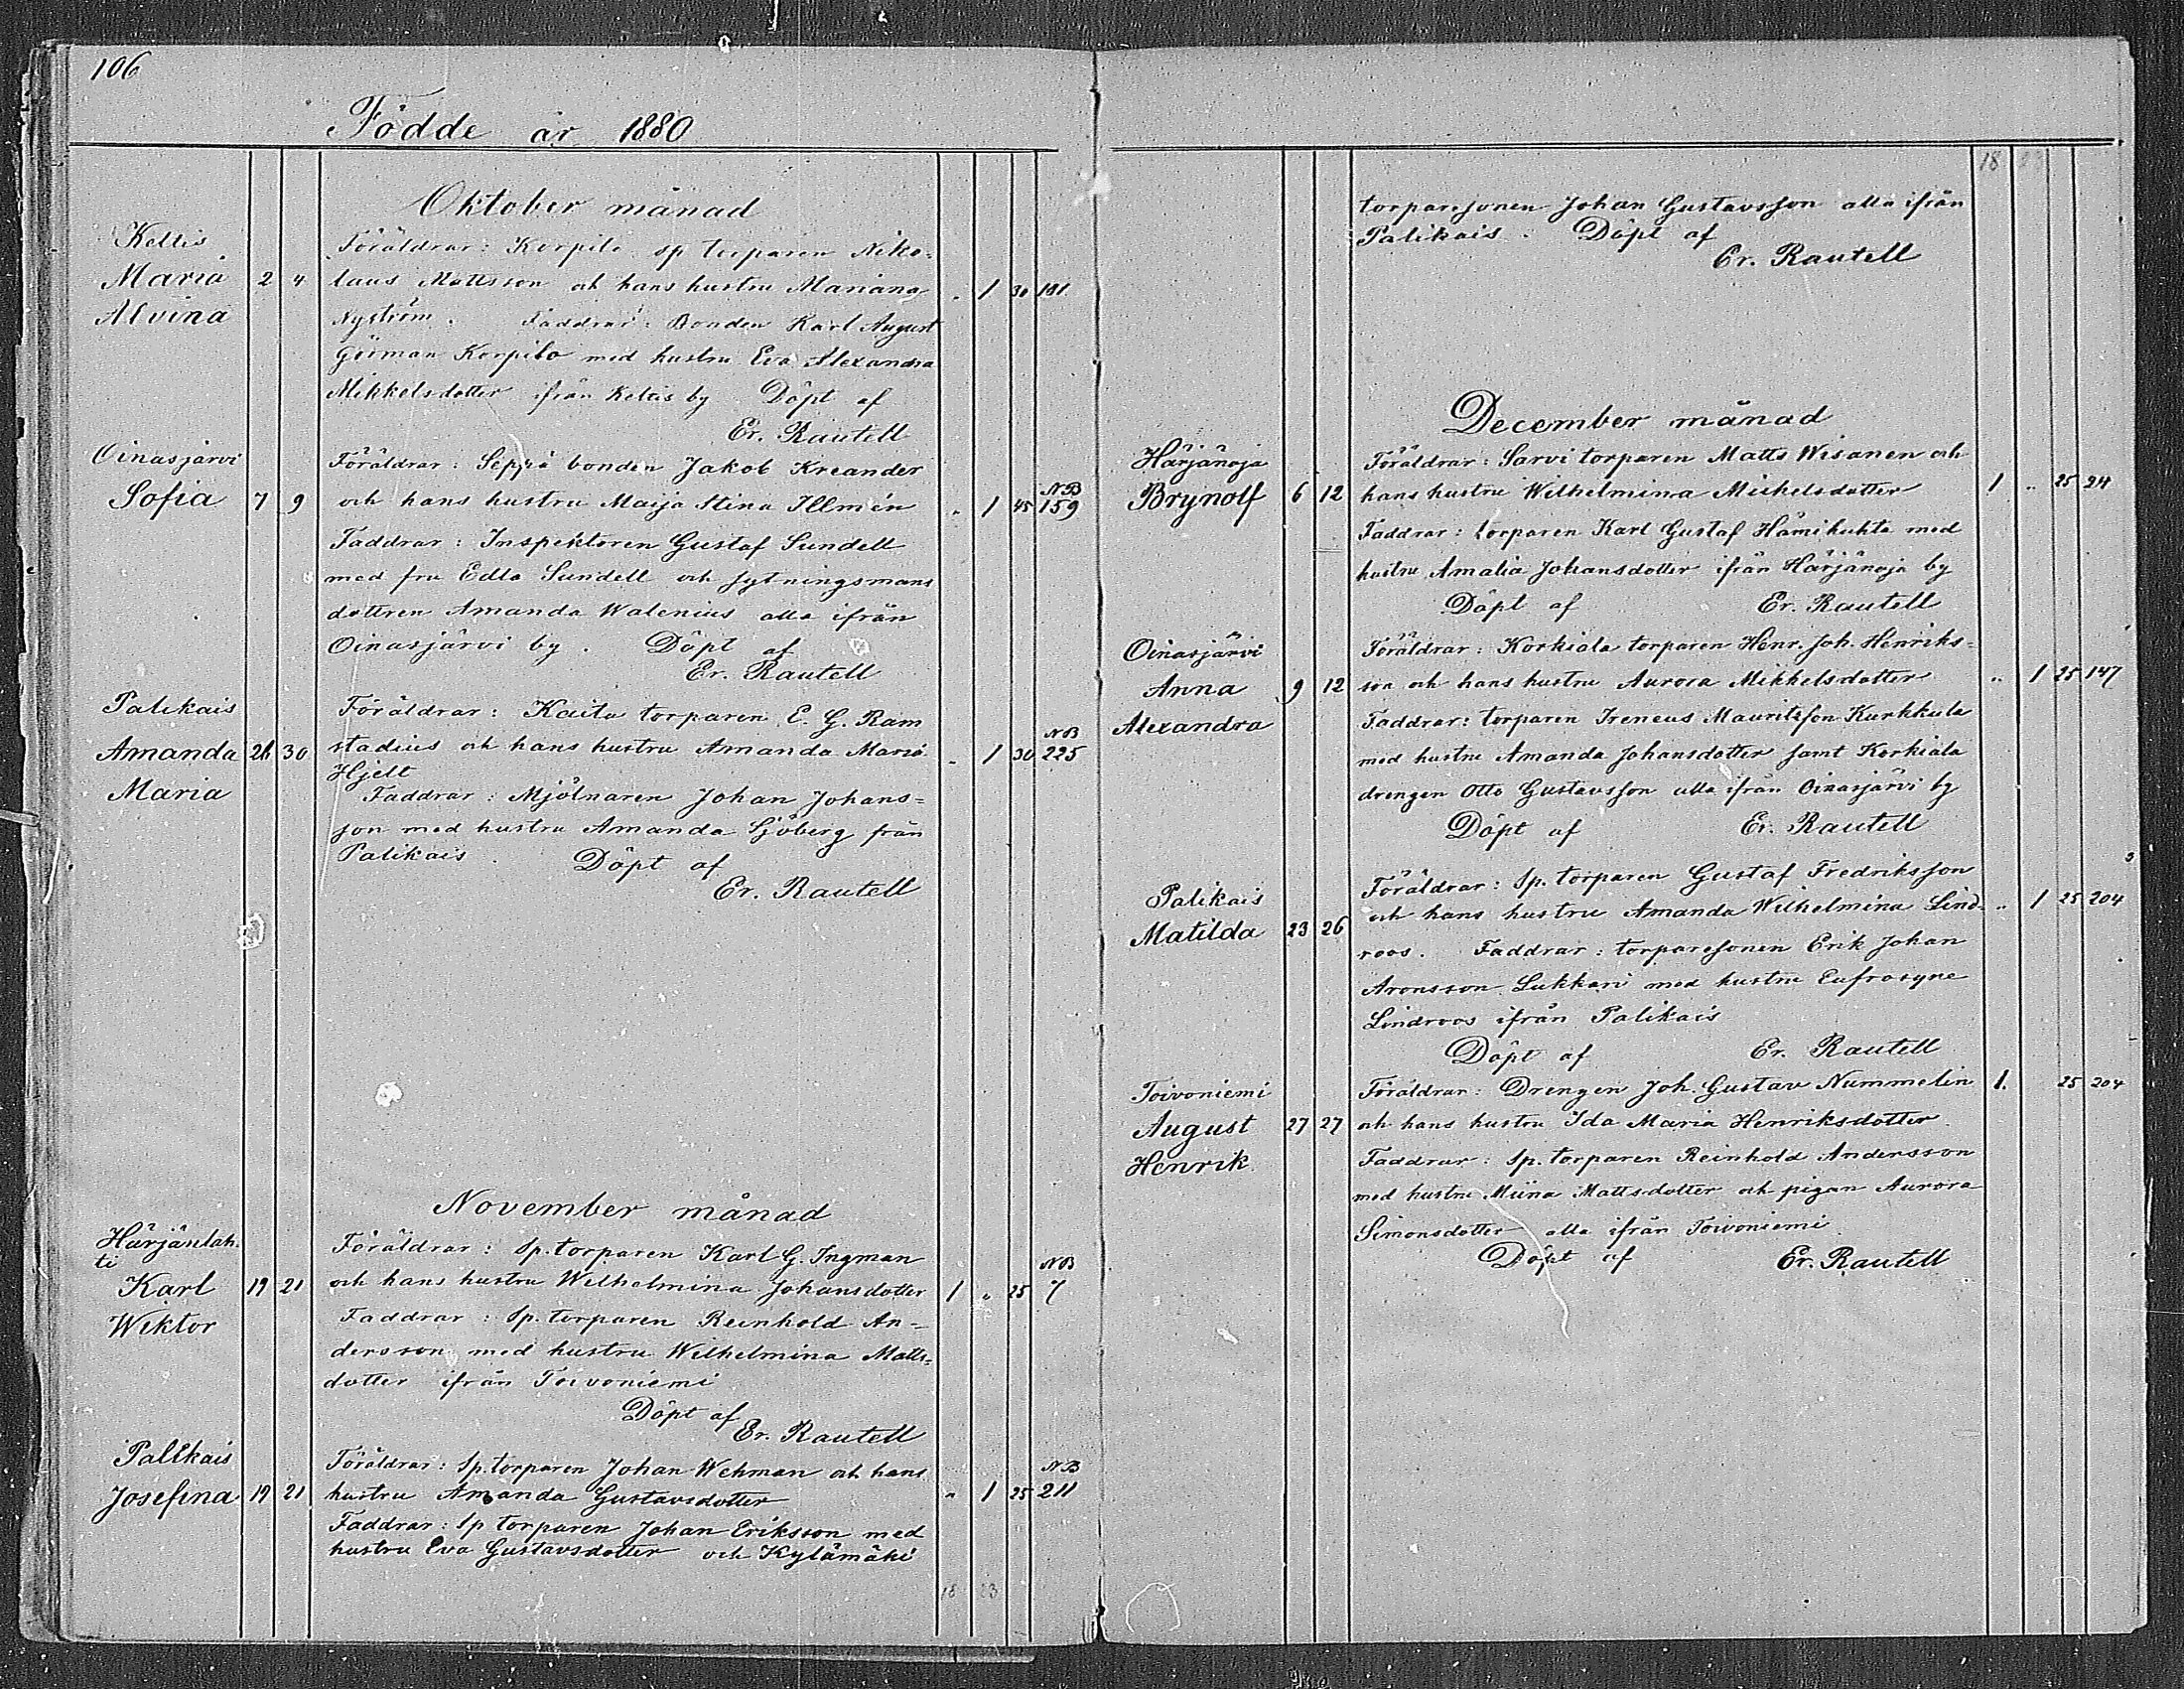 106
Födde år 1880
Oktober månad
Keltis
Föräldrar: Korpilo sp torparen Niko-
Maria 2 4 laus Mattsson och hans hustru Mariana " 1 30 181
Alvina
Nyström. Faddrar: Bonden Karl August
Görman Korpilo med hustru Eva Alexandra
Mikkelsdotter ifrån Keltis by Döpt af
Er. Rautell
Oinasjärvi
Föräldrar: Seppä bonden Jakob Kreander
Sofia 7 9 och hans hustru Maija Stina Illmén " 1 45 NB 159
Faddrar: Inspektoren Gustaf Sundell
med fru Edla Sundell och sytningsmans
dottren Amanda Walenius alla ifrån
Oinasjärvi by. Döpt af
Er. Rautell
Palikais
Föräldrar: Kaita torparen E. G. Ram
Amanda 26 30 stadius och hans hustru Amanda Maria " 1 30 NB 225
Hjelt
Maria
Faddrar: Mjölnaren Johan Johans=
son med hustru Amanda Sjöberg från
Palikais. Döpt af
Er. Rautell
November månad
Härjänlah-
ti
Föräldrar: Sp. torparen Karl G. Ingman
Karl 19 21 och hans hustru Wilhelmina Johansdotter 1 " 25 NB 7
Wiktor
Faddrar: Sp. torparen Reinhold An=
dersson med hustru Wilhelmina Matts=
dotter ifrån Toivoniemi
Döpt af
Er. Rautell
Palikais
Föräldrar: Sp. torparen Johan Wehman och hans
Josefina 19 21 hustru Amanda Gustavsdotter " 1 25 NB 211
Faddrar: Sp torparen Johan Eriksson med
hustru Eva Gustavsdotter och Kylämäki
18 23
18 23
torparesonen Johan Gustavsson alla ifrån
Palikais. Döpt af
Er. Rautell
December månad
Härjänoja
Föräldrar: Sarvi torparen Matts Wisanen och
Brynolf 6 12 hans hustru Wilhelmina Mickelsdotter 1 " 25 24
Faddrar: torparen Karl Gustaf Hämikukta med
hustru Amalia Johansdotter ifrån Härjänoja by
Döpt af Er. Rautell
Oinasjärvi
Föräldrar: Korkiala torparen Henr. Joh. Henriks=
Anna 9 12 son och hans hustru Aurora Mikkelsdotter " 1 25 147
Alexandra
Faddrar: torparen Ireneus Mauritzson Kurkkula
med hustru Amanda Johansdotter samt Korkiala
drengen Otto Gustavsson alla ifrån Oinasjärvi by
Döpt af Er. Rautell
Palikais
Föräldrar: Sp. torparen Gustaf Fredriksson
Matilda 23 26 och hans hustru Amanda Wilhelmina Lind- " 1 25 204
roos. Faddrar: torparesonen Erik Johan
Aronsson Lukkari med hustru Eufrosyne
Lindroos ifrån Palikais
Döpt af Er. Rautell
Toivoniemi
Föräldrar: Drengen Joh. Gustav Nummelin 1. 25 204
August 27 27 och hans hustru Ida Maria Henriksdotter.
Henrik
Faddrar: Sp. torparen Reinhold Andersson
med hustru Miina Mattsdotter och pigan Aurora
Simonsdotter alla ifrån Toivoniemi
Döpt af Er. Rautell